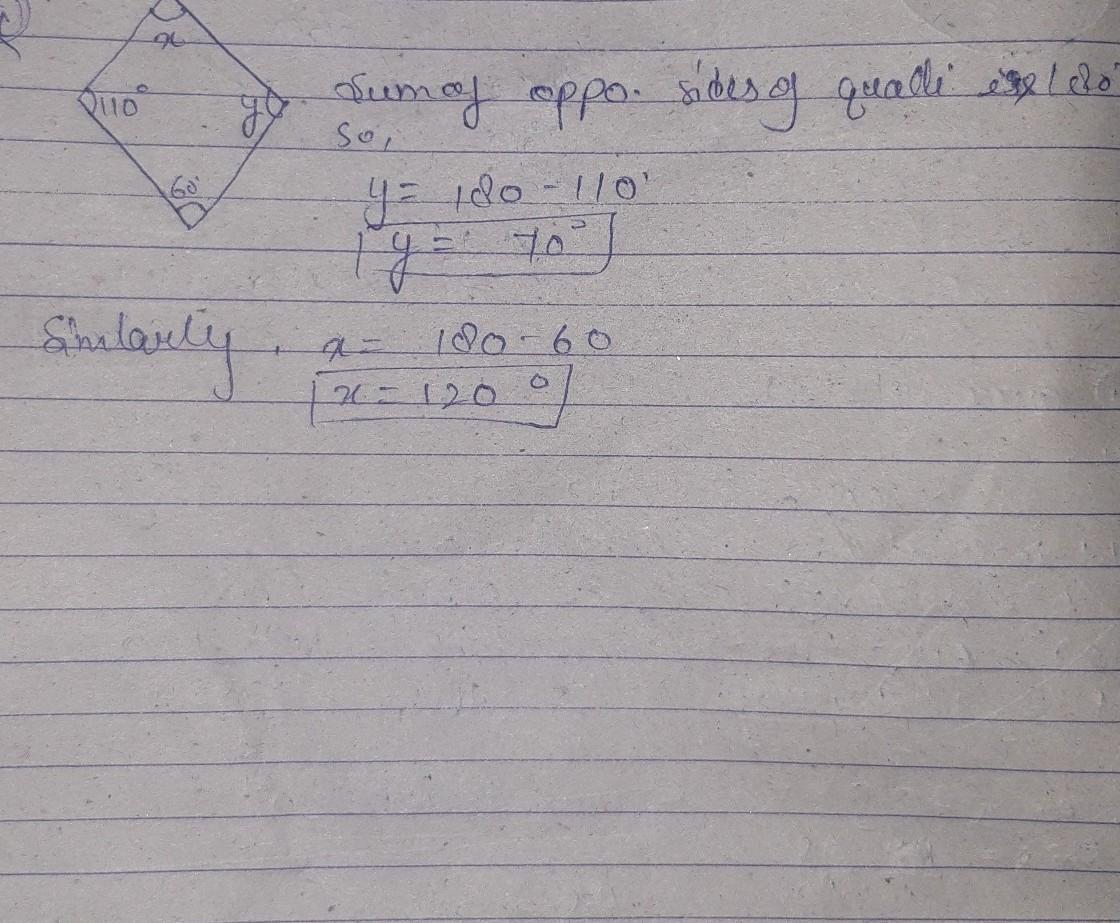 x
110°
y
60°
Sum of oppo. sides of quadli is 180°
so,
y = 180 - 110°
y = 70°
Similarly, x = 180 - 60
x = 120°